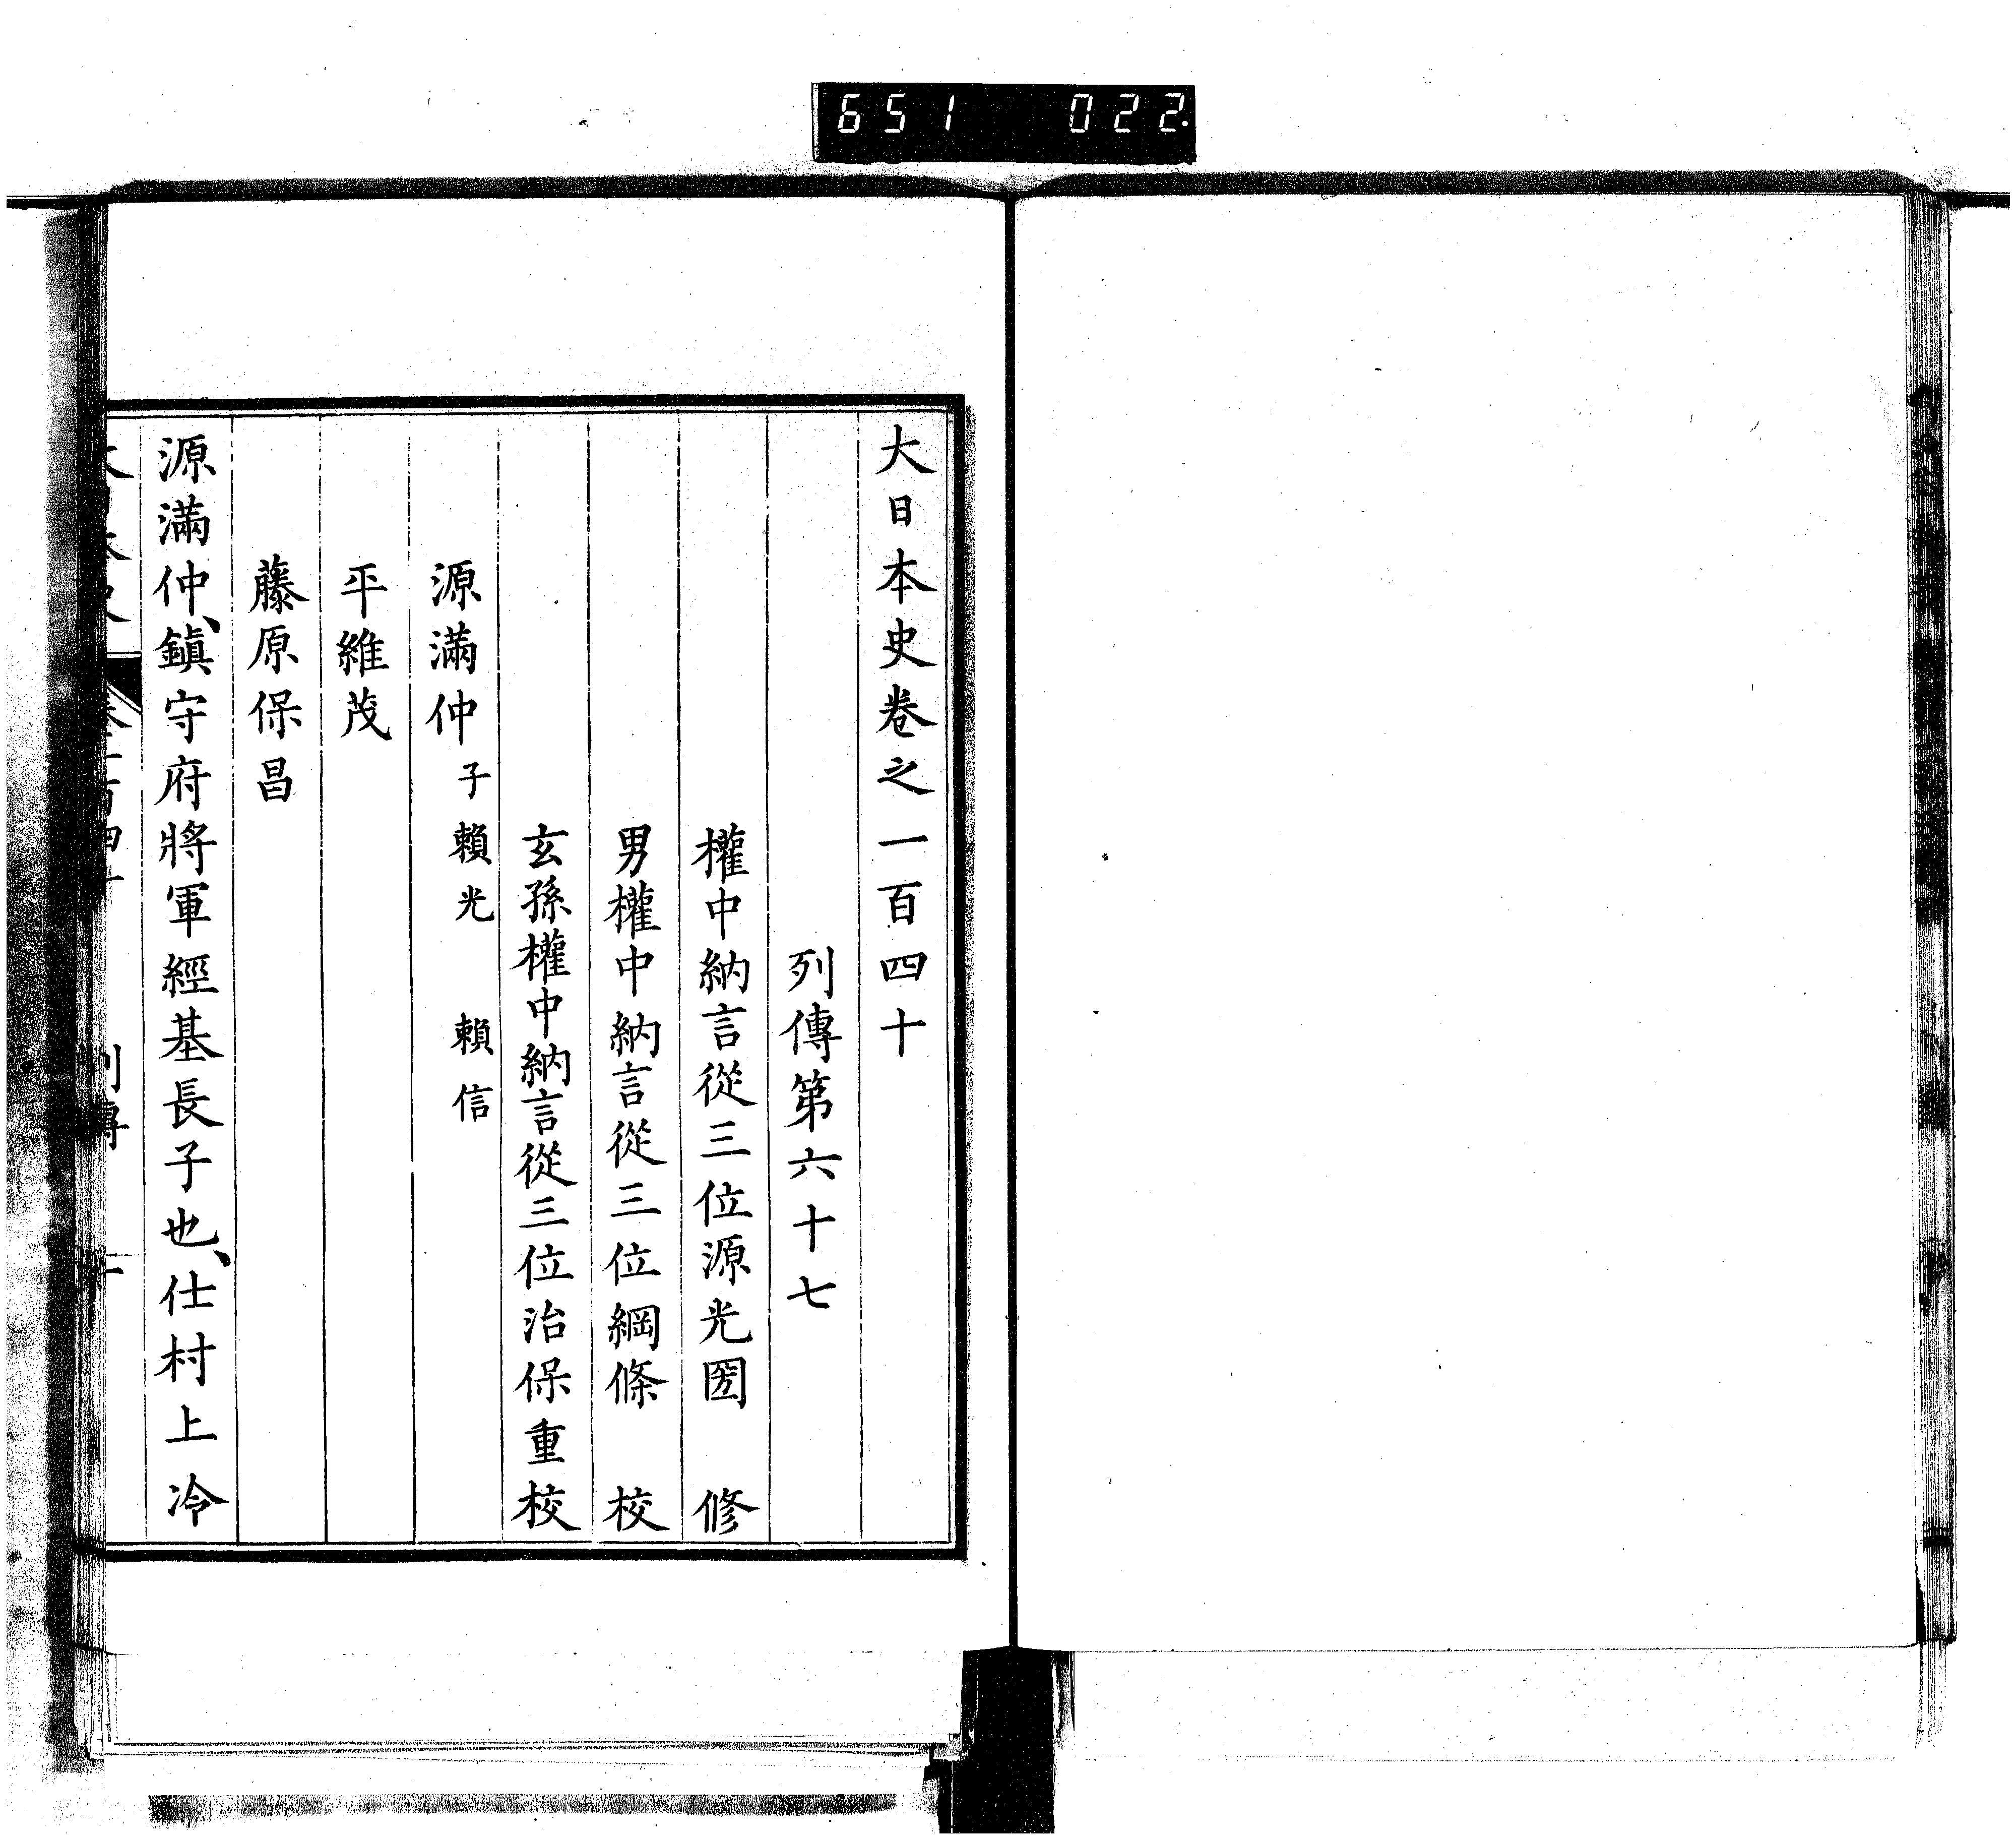 651 022
大日本史卷之一百四十
列傳第六十七
權中納言從三位源光圀 修
男權中納言從三位綱條 校
玄孫權中納言從三位治保重校
源滿仲 子賴光 賴信
平維茂
藤原保昌
源滿仲、鎭守府將軍經基長子也、仕村上冷